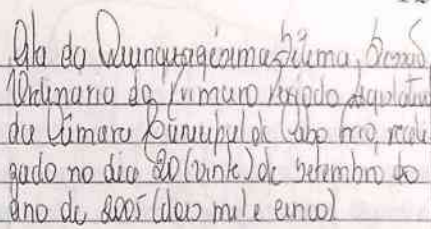 Ata da Quinquagésima Sétima Sessão
Ordinária do Primeiro Período Legislativo
da Câmara Municipal de Cabo Frio, reali
zada no dia 20 (vinte) de setembro do
ano de 2005 (dois mil e cinco)